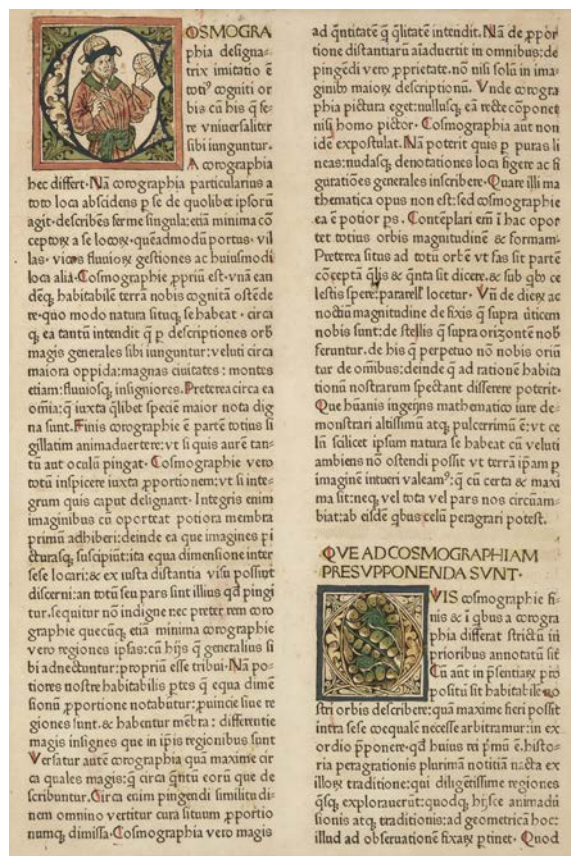 COSMOGRA
phia designa-
trix imitatio ē
toti⁹ cogniti or
bis cū his q̄ fe-
re vniuersaliter
sibi iunguntur.
A corographia
hec differt·Nā corographia particularius a
toto loca abscidens ꝑ se de quolibet ipsorū
agit·describēs ferme singula:etiā minima cō
ceptoꝝ a se locoꝝ·quēadmodū portus· vil
las· vicos fluuioꝝ gestiones ac huiusmodi
loca aliā·Cosmographie ꝓpriū est·vnā ean
dēqꝫ habitabilē terrā nobis cognitā ostēde
re·quo modo natura situqꝫ se habeat · circa
qꝫ ea tantū intendit q̄ ꝑ descriptiones orb̄
magis generales sibi iunguntur:veluti circa
maiora oppida:magnas ciuitates : montes
etiam:fluuiosqꝫ insigniores.Preterea circa ea
om̄ia:q̄ iuxta q̄libet speciē maior nota dig
na sunt.Finis corographie ē partē totius si
gillatim animaduertere:vt si quis aurē tan-
tū aut oculū pingat·Cosmographie vero
totū inspicere iuxta ꝓportionem:vt si inte-
grum quis caput designaret· Integris enim
imaginibus cū oporteat potiora membra
primū adhiberi:deinde ea que imagines pi
cturasqꝫ suscipiūt:ita equa dimensione inter
sese locari:& ex iusta distantia visu possint
discerni:an totū seu pars sint illius qđ pingi
tur.sequitur nō indigne nec preter rem coro
graphie quecūqꝫ etiā minima corographie
vero regiones ipsas:cū hijs q̄ generalius si
bi adnectuntur:propriū esse tribui·Nā po-
tiores nostre habitabilis ꝑtes q̄ equa dimē
sionū ꝓportione notabūtur:ꝓuincie siue re
giones sunt.& habentur mēbra : differentie
magis insignes que in iꝑis regionibus sunt
Versatur autē corographia quā maxime cir
ca quales magis:q̄ circa q̄ntū eorū que de
scribuntur.Circa enim pingendi similitudi-
nem omnino vertitur cura situum ꝓportio
numqꝫ dimissa·Cosmographia vero magis
ad q̄ntitatē q̄ q̄litatē intendit.Nā de ꝓpor
tione distantiarū aīaduertit in omnibus:de
pingēdi vero ꝓprietate.nō nisi solū in ima-
ginib⁹ maioꝝ descriptionū. Vnde corogra
phia pictura eget:nullusqꝫ eā recte cōponet
nisi homo pictor·Cosmographia aut non
idē expostulat.Nā poterit quis ꝑ puras li
neas:nudasqꝫ denotationes loca figere ac fi
guratiōes generales inscribere·Quare illi ma
thematica opus non est:sed cosmographie
ea ē potior ps . Contēplari em̄ ī hac opor
tet totius orbis magnitudinē & formam·
Preterea situs ad totū orbē vt fas sit partē
cōceptā q̄lis & q̄nta sit dicere.& sub q̄bo ce
lestis spere:pararell̄ locetur · Vn̄ de dieꝝ ac
noctiū magnitudine de fixis q̄ supra ūticem
nobis sunt:de stellis q̄ supra orizontē nob̄
feruntur.de his q̄ perpetuo nō nobis oriū
tur de omībus:deinde q̄ ad rationē habita
tionū nostrarum spectant disserere poterit·
Que hūanis ingenijs mathematico iure de-
monstrari altissimū atqꝫ pulcerrimū ē:vt ce
lū scilicet ipsum natura se habeat cū veluti
ambiens nō ostendi possit vt terrā ipam ꝑ
imaginē intueri valeam⁹:q̄ cū certa & maxi
ma sit:neqꝫ vel tota vel pars nos circūam-
biat:ab eisdē q̄bus celū peragrari potest.
QVE AD COSMOGRAPHIAM
PRESVPPONENDA SVNT·
QVIS cosmographie fi-
nis & ī q̄bus a corogra
phia differat strictū in
prioribus annotatū sit
Cū aūt in p̄sentiaꝝ pro
positū sit habitabilē no
stri orbis describere:quā maxime fieri possit
intra sese coequalē necesse arbitramur:in ex
ordio p̄ponere·qđ huius rei p̄mū ē.histo-
ria peragrationis plurimā notitiā nacta ex
illoꝝ traditione:qui diligētissime regiones
q̄sqꝫ explorauerūt:quodqꝫ hijsce animadū
sionis atqꝫ traditionis:ad geometricā hoc:
illud ad obseruationē fixaꝝ ꝑtinet· Quod